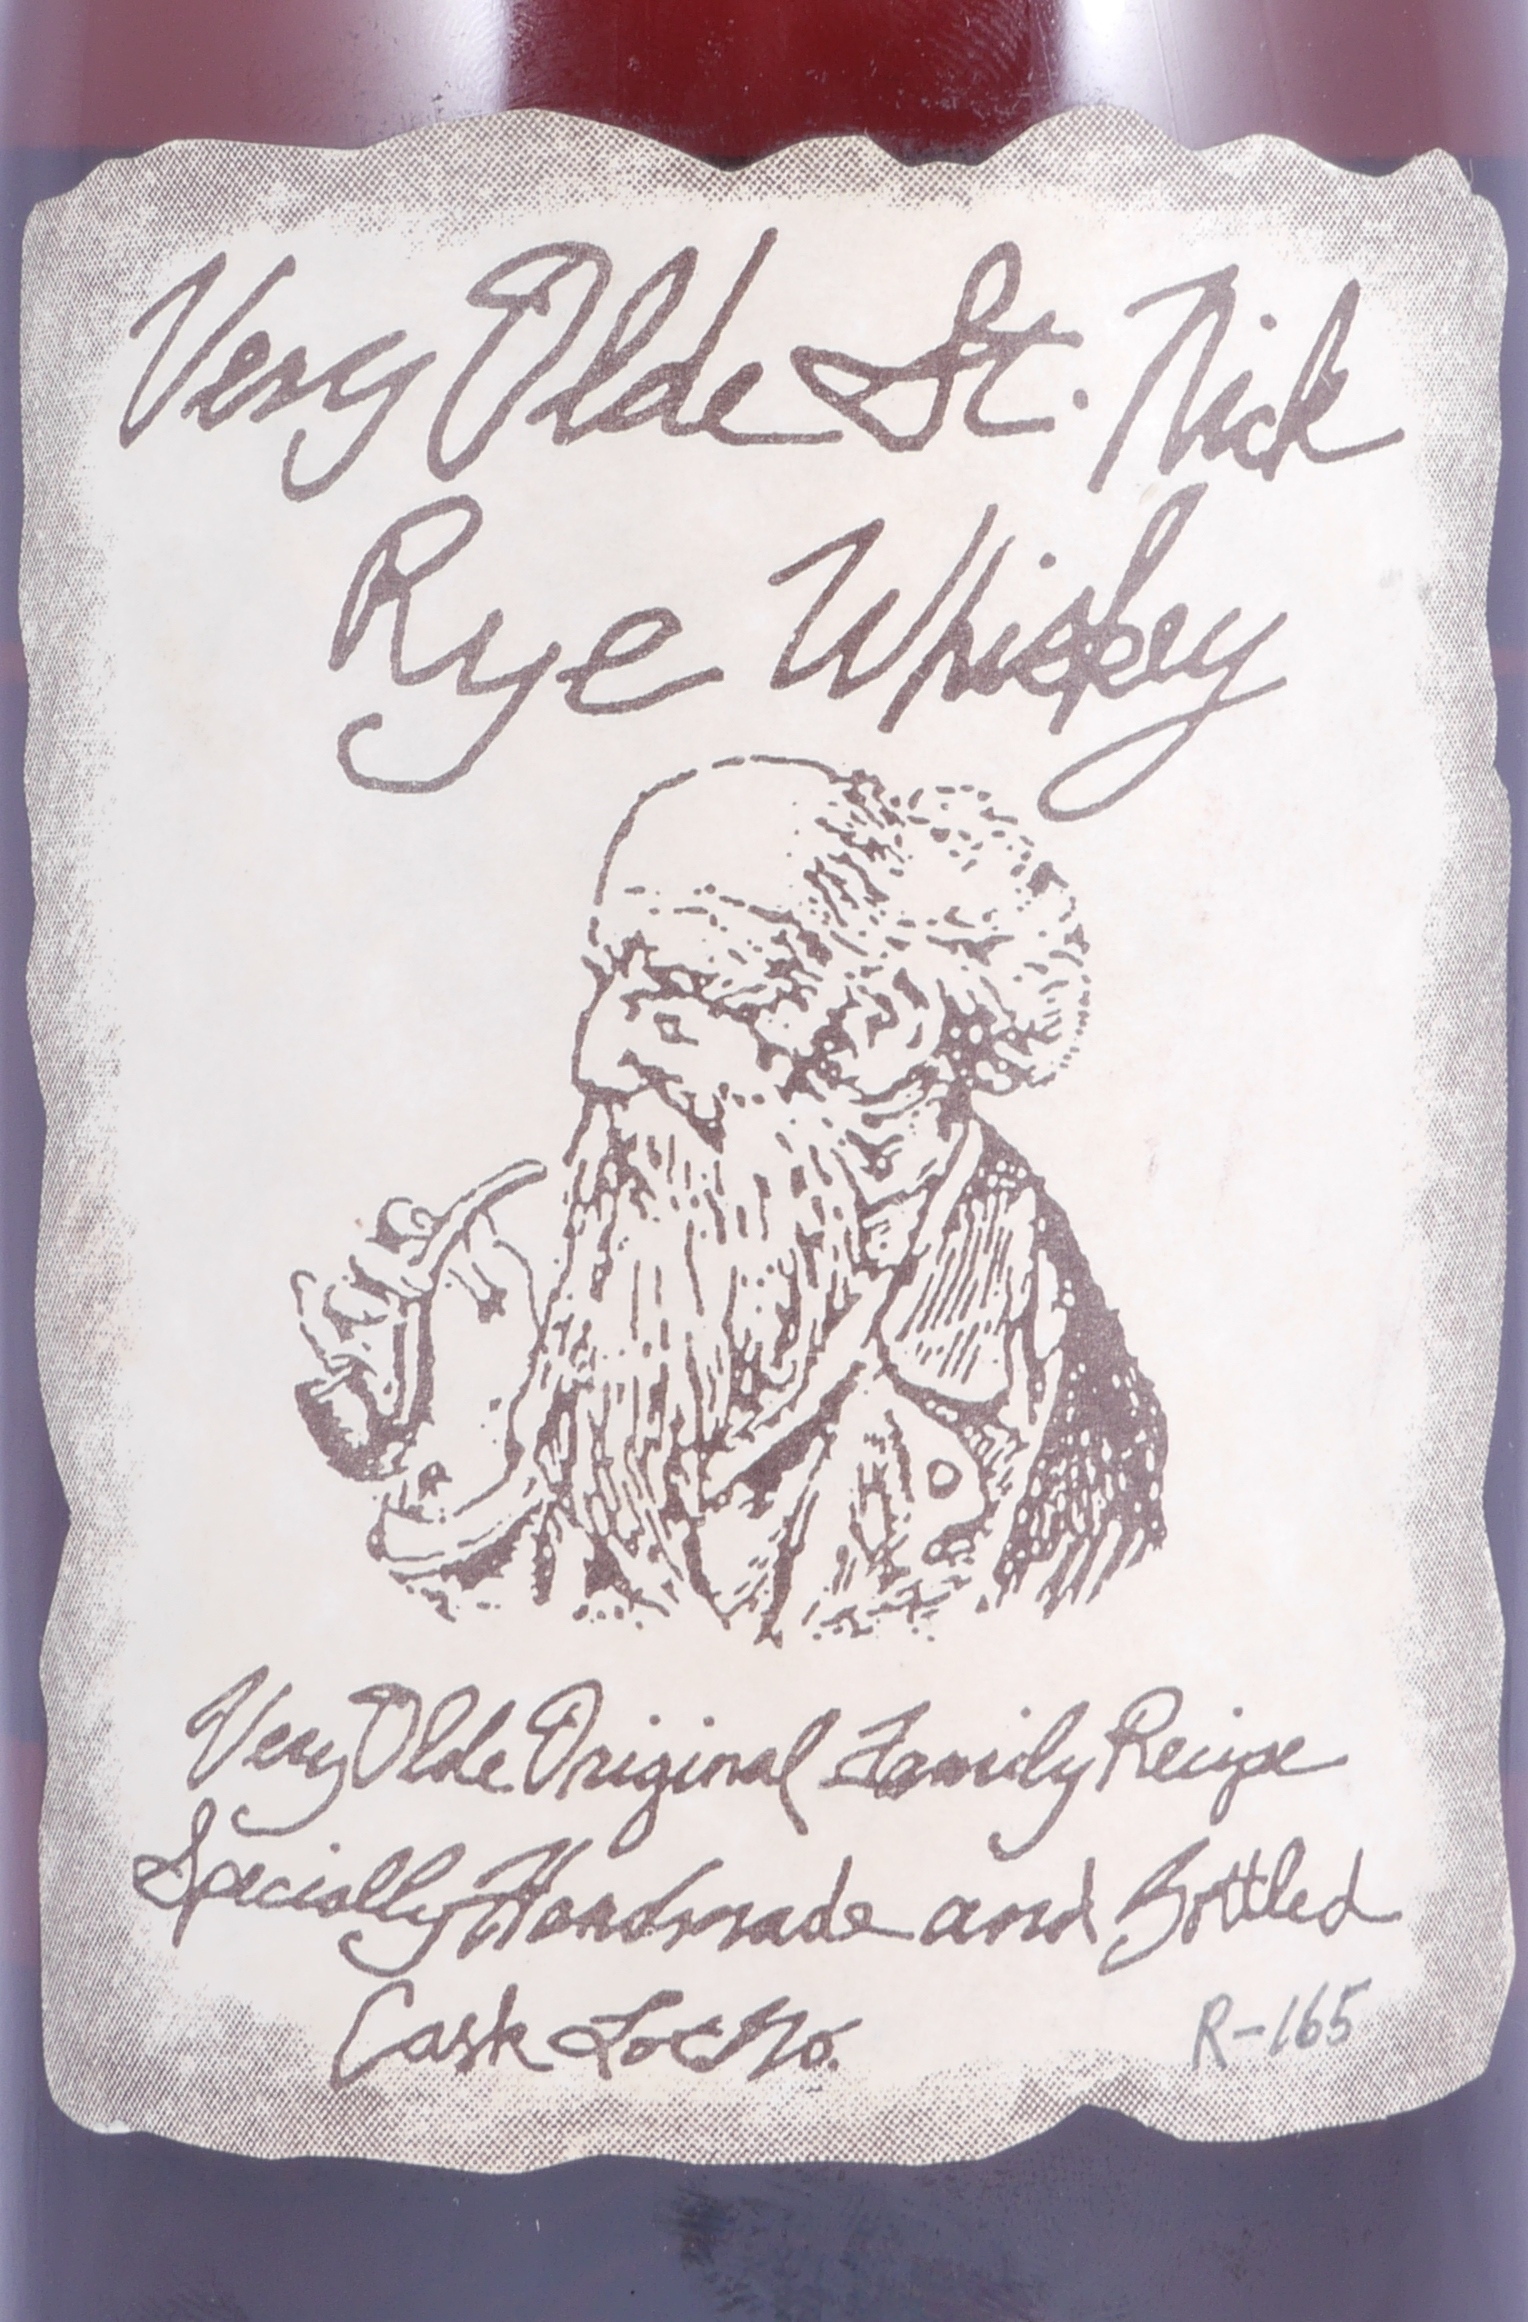 Very Olde St. Nick
Rye Whiskey
Very Olde Original Family Recipe
Specially Handmade and Bottled
Cask Lot No. R-165